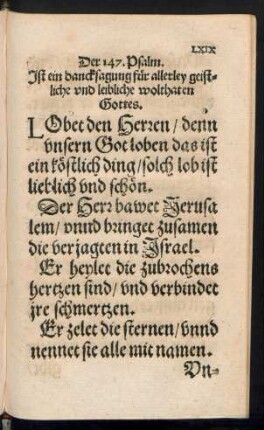 LXIX
Der 147. Psalm.
Ist ein dancksagung für allerley geist-
liche vnd leibliche wolthaten
Gottes.
LObet den Herren / denn
vnsern Got loben das ist
ein köstlich ding / solch lob ist
lieblich vnd schön.
Der Herr bawet Jerusa
lem / vnnd bringet zusamen
die verjagten in Israel.
Er heylet die zubrochens
hertzen sind / vnd verbindet
jre schmertzen.
Er zelet die sternen / vnnd
nennet sie alle mit namen.
Vn-